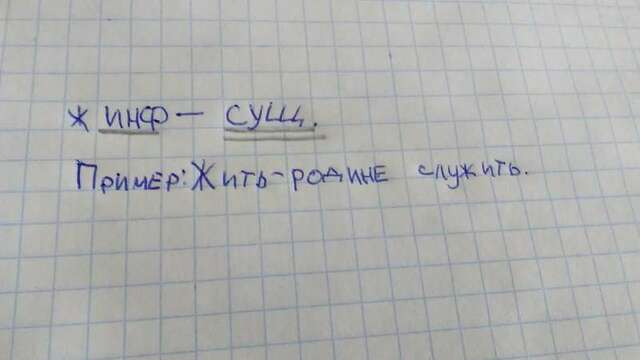 ж ИНФ — СУЩ.
Пример: Жить - родине служить.